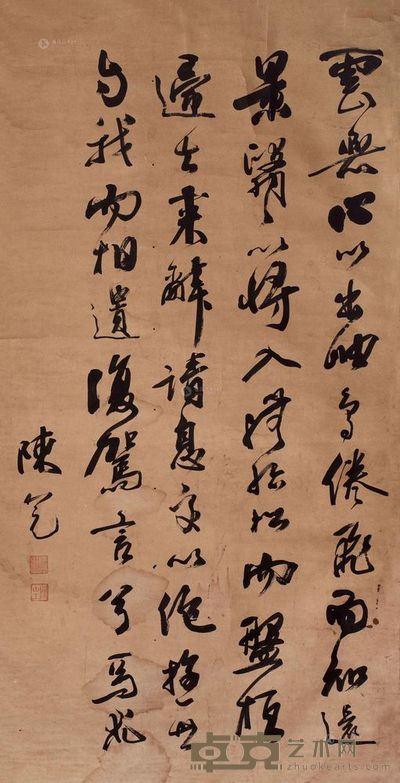 雲無心以出岫鳥倦飛而知還
景翳〻以將入撫孤松而盤桓
歸去来辭請息交以絶遊世
与我而相遺復駕言兮焉求
陳
卓克艺术网
zhuokearts.com